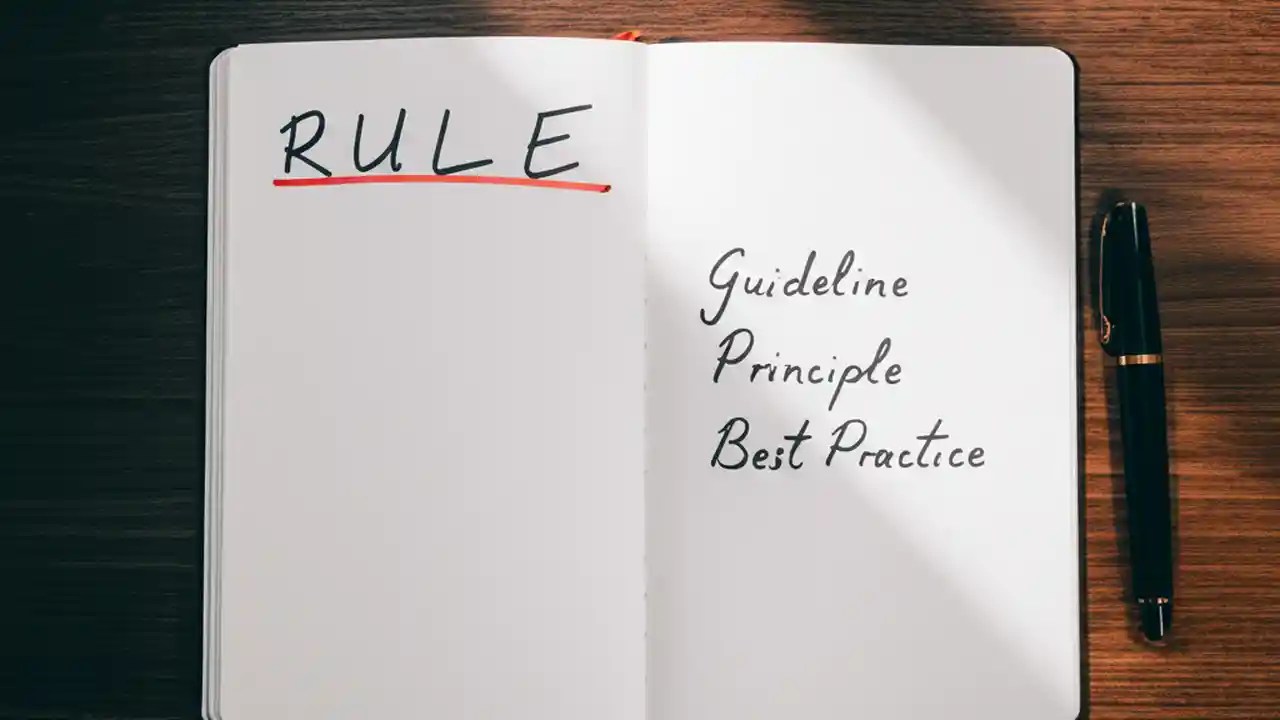 RULE
Guideline
Principle
Best Practice